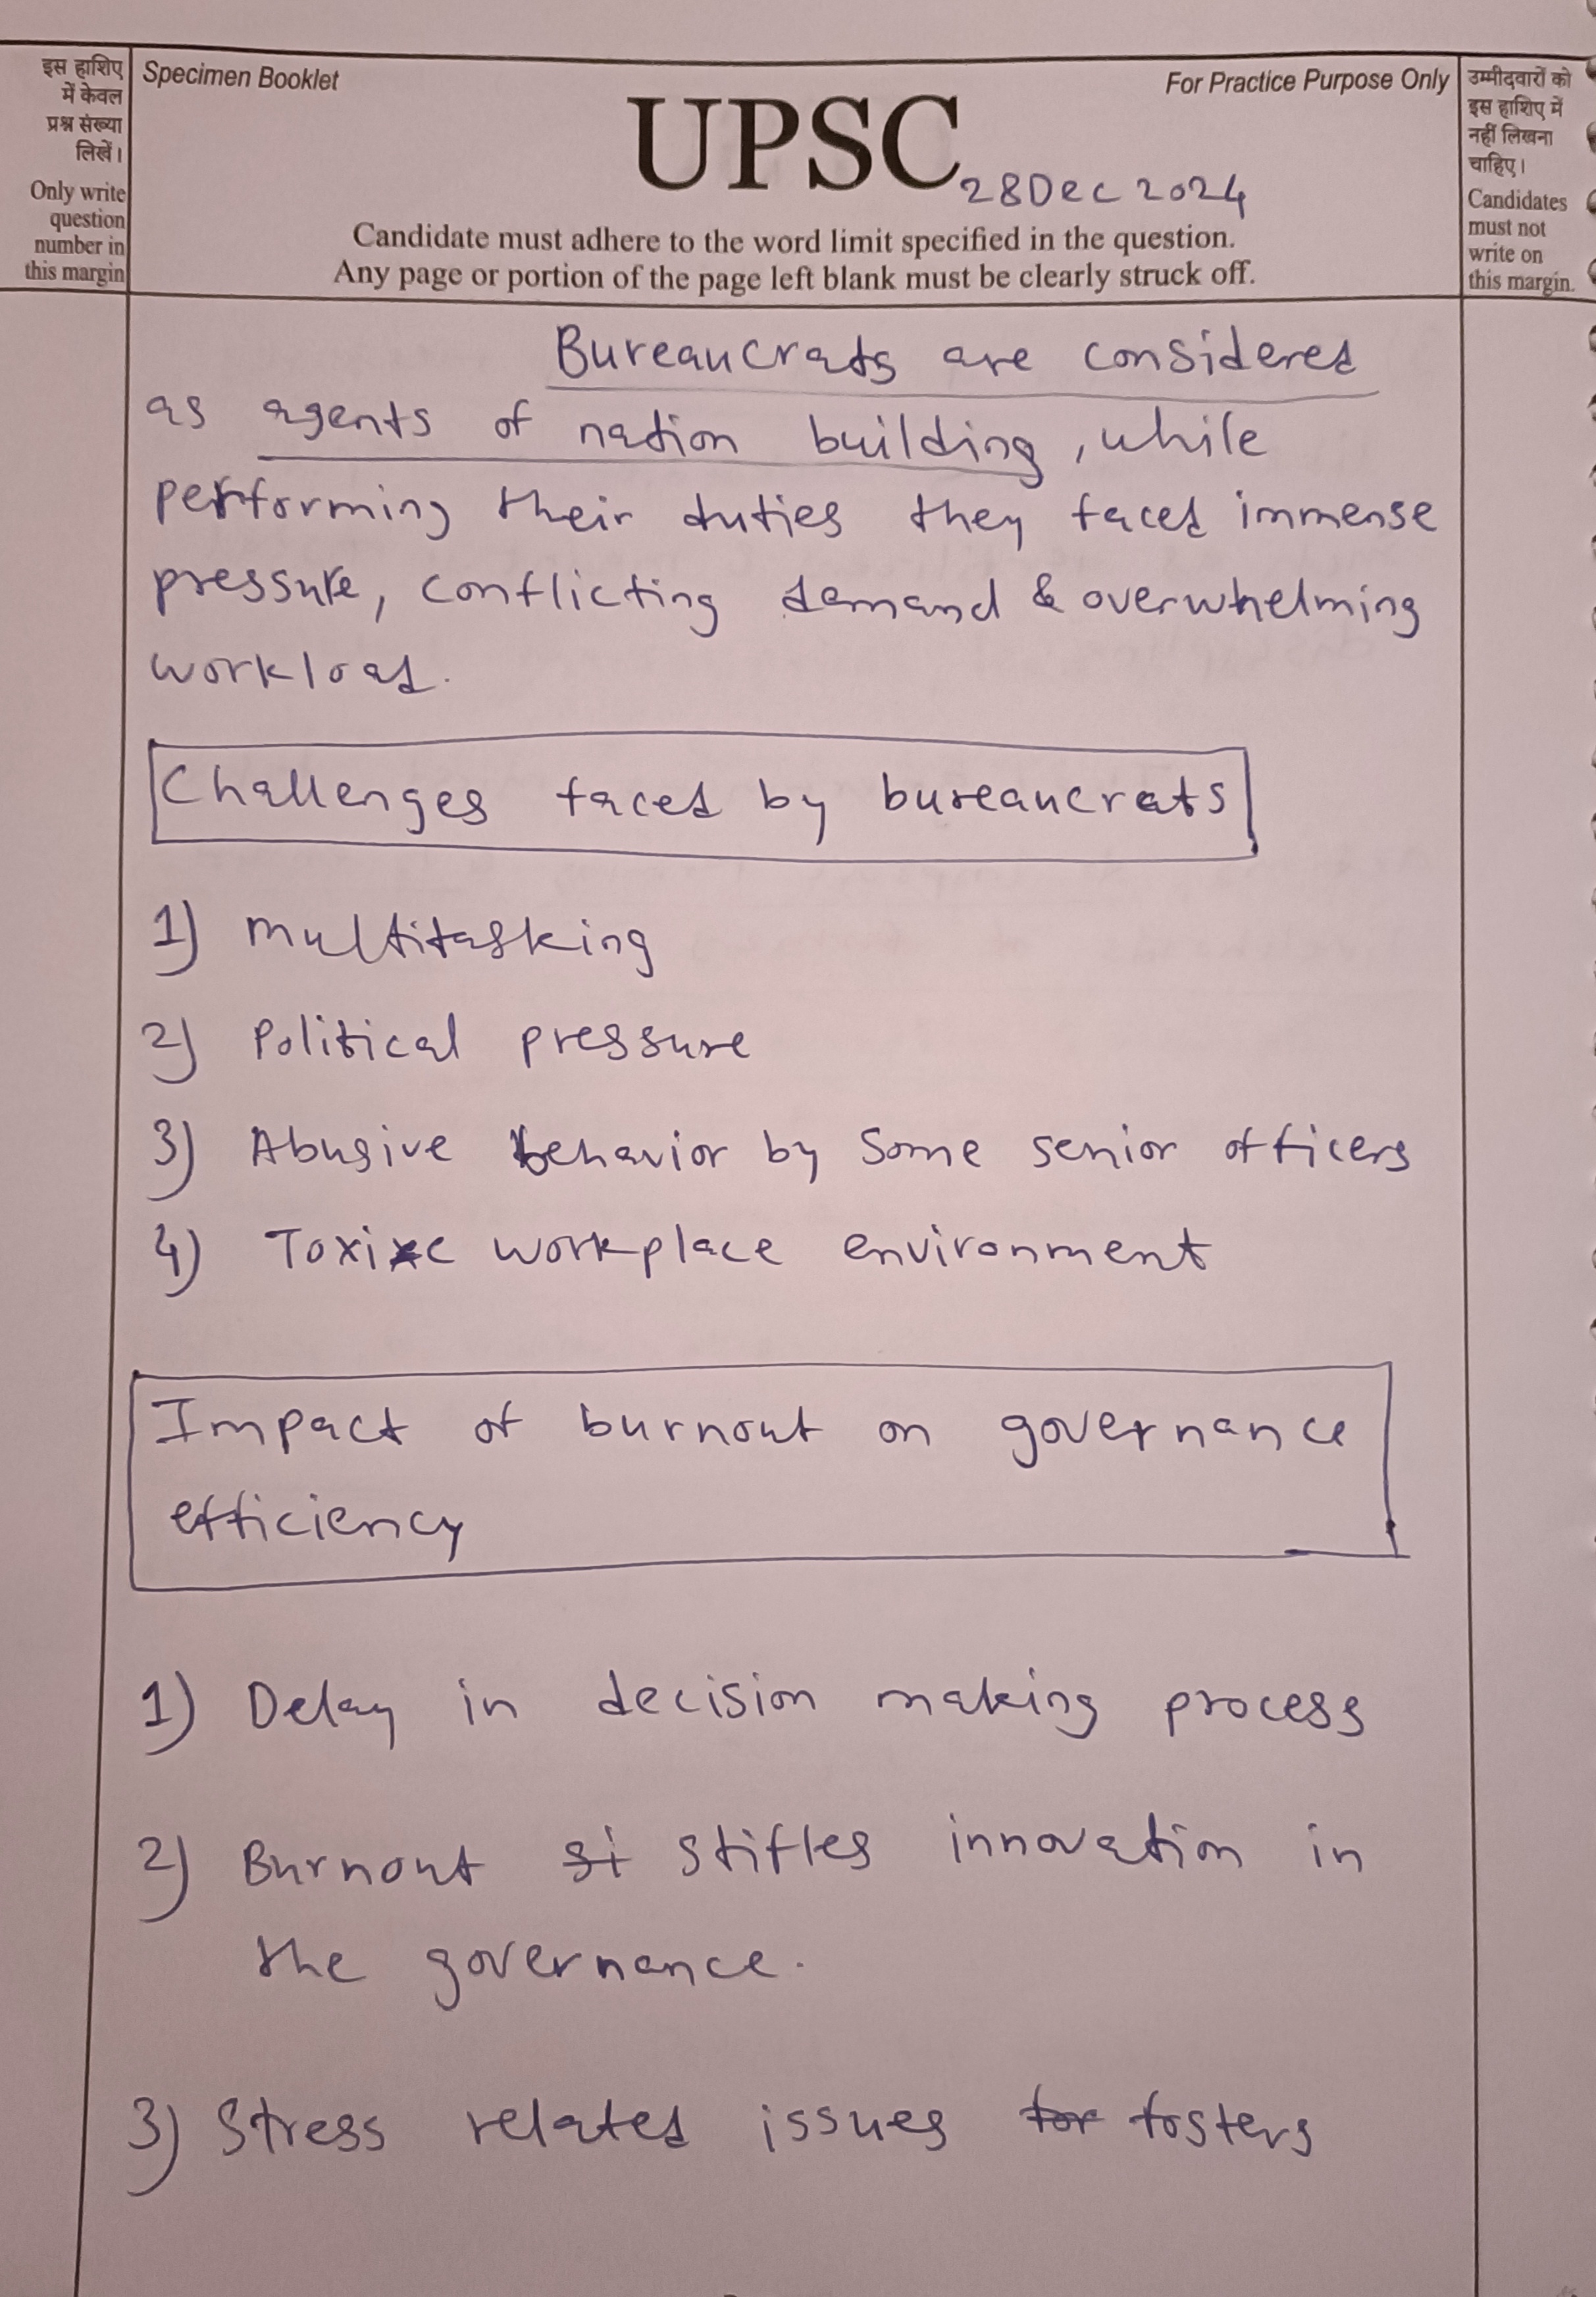 इस हाशिए
में केवल
प्रश्न संख्या
लिखें।
Only write
question
number in
this margin
Specimen Booklet
For Practice Purpose Only
UPSC
28 Dec 2024
Candidate must adhere to the word limit specified in the question.
Any page or portion of the page left blank must be clearly struck off.
उम्मीदवारों को
इस हाशिए में
नहीं लिखना
चाहिए।
Candidates
must not
write on
this margin.
Bureaucrats are considered
as agents of nation building, while
performing their duties they faced immense
pressure, conflicting demand & overwhelming
workload.
Challenges faced by bureaucrats
1) Multitasking
2) Political pressure
3) Abusive behavior by some senior officers
4) Toxic workplace environment
Impact of burnout on governance
efficiency
1) Delay in decision making process
2) Burnout st stifles innovation in
the governance.
3) Stress related issues for fosters